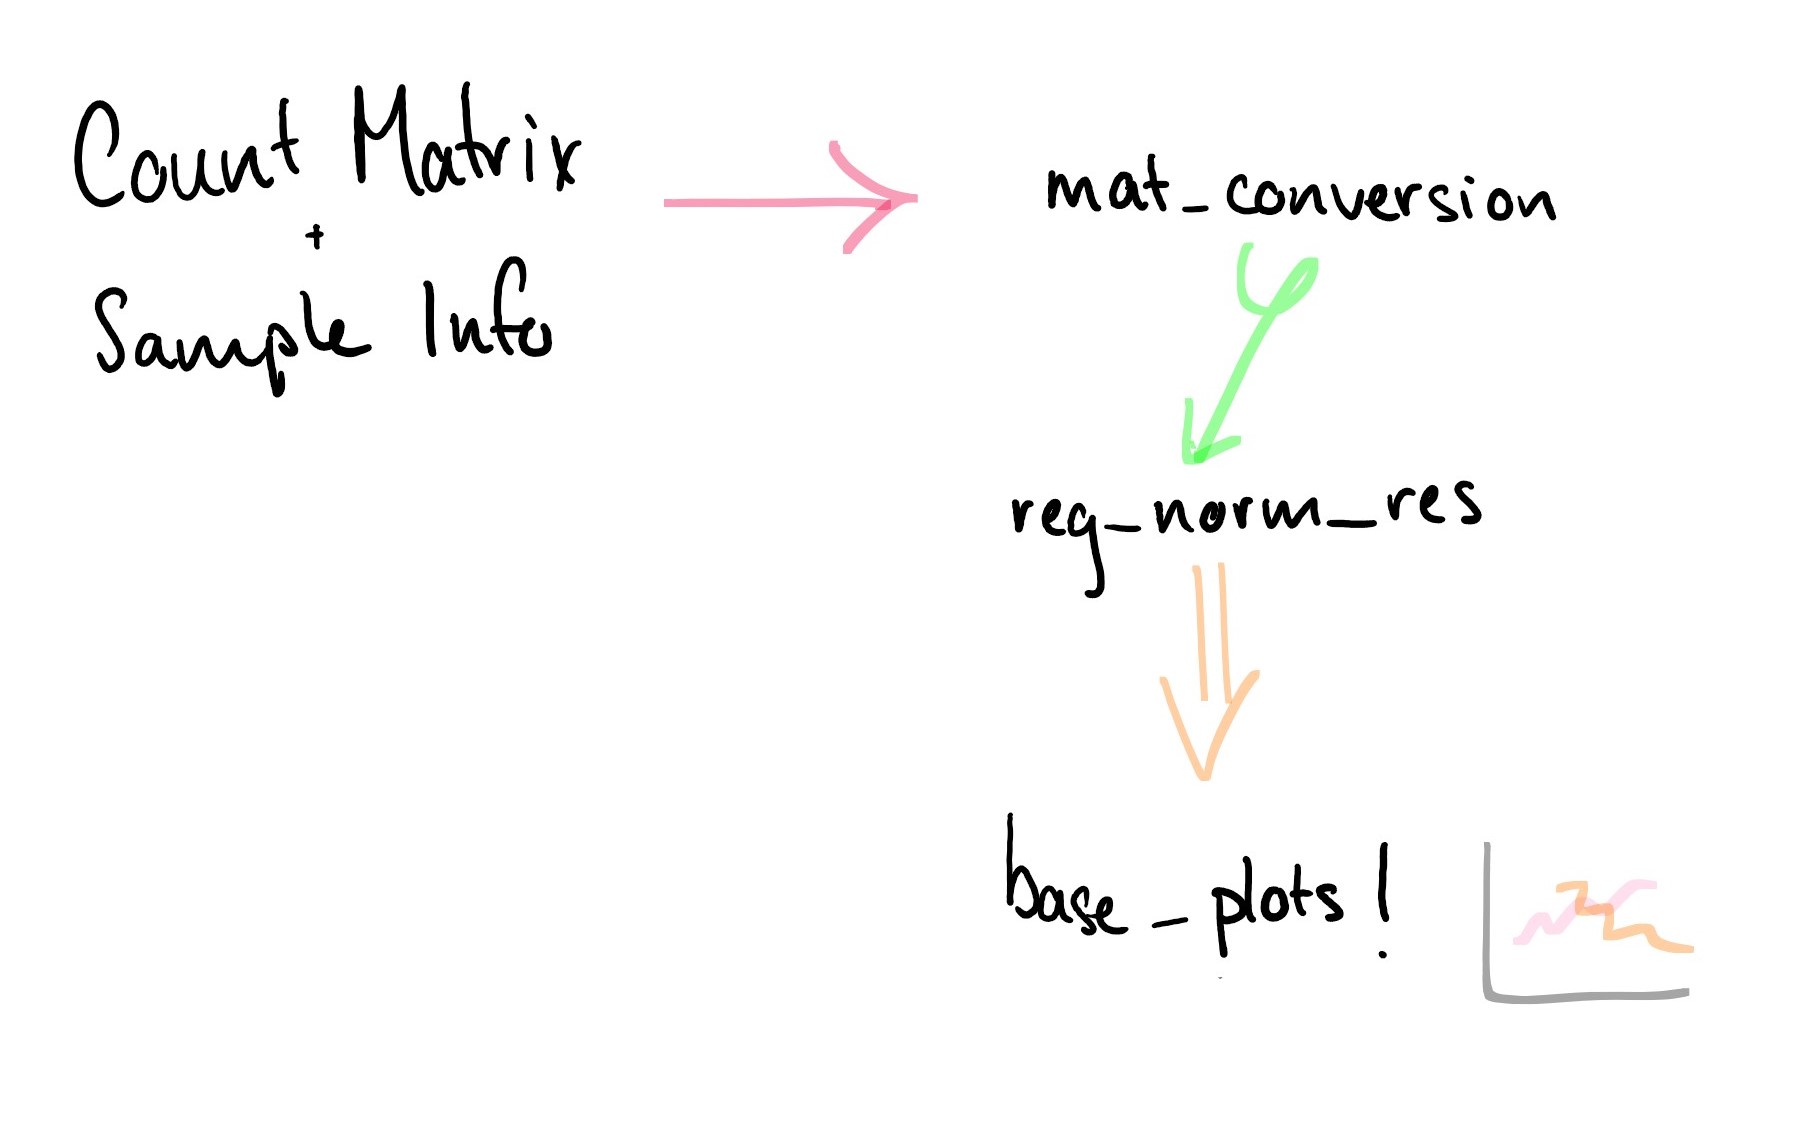 Count Matrix
+
Sample Info
mat_conversion
reg_norm_res
base_plots!